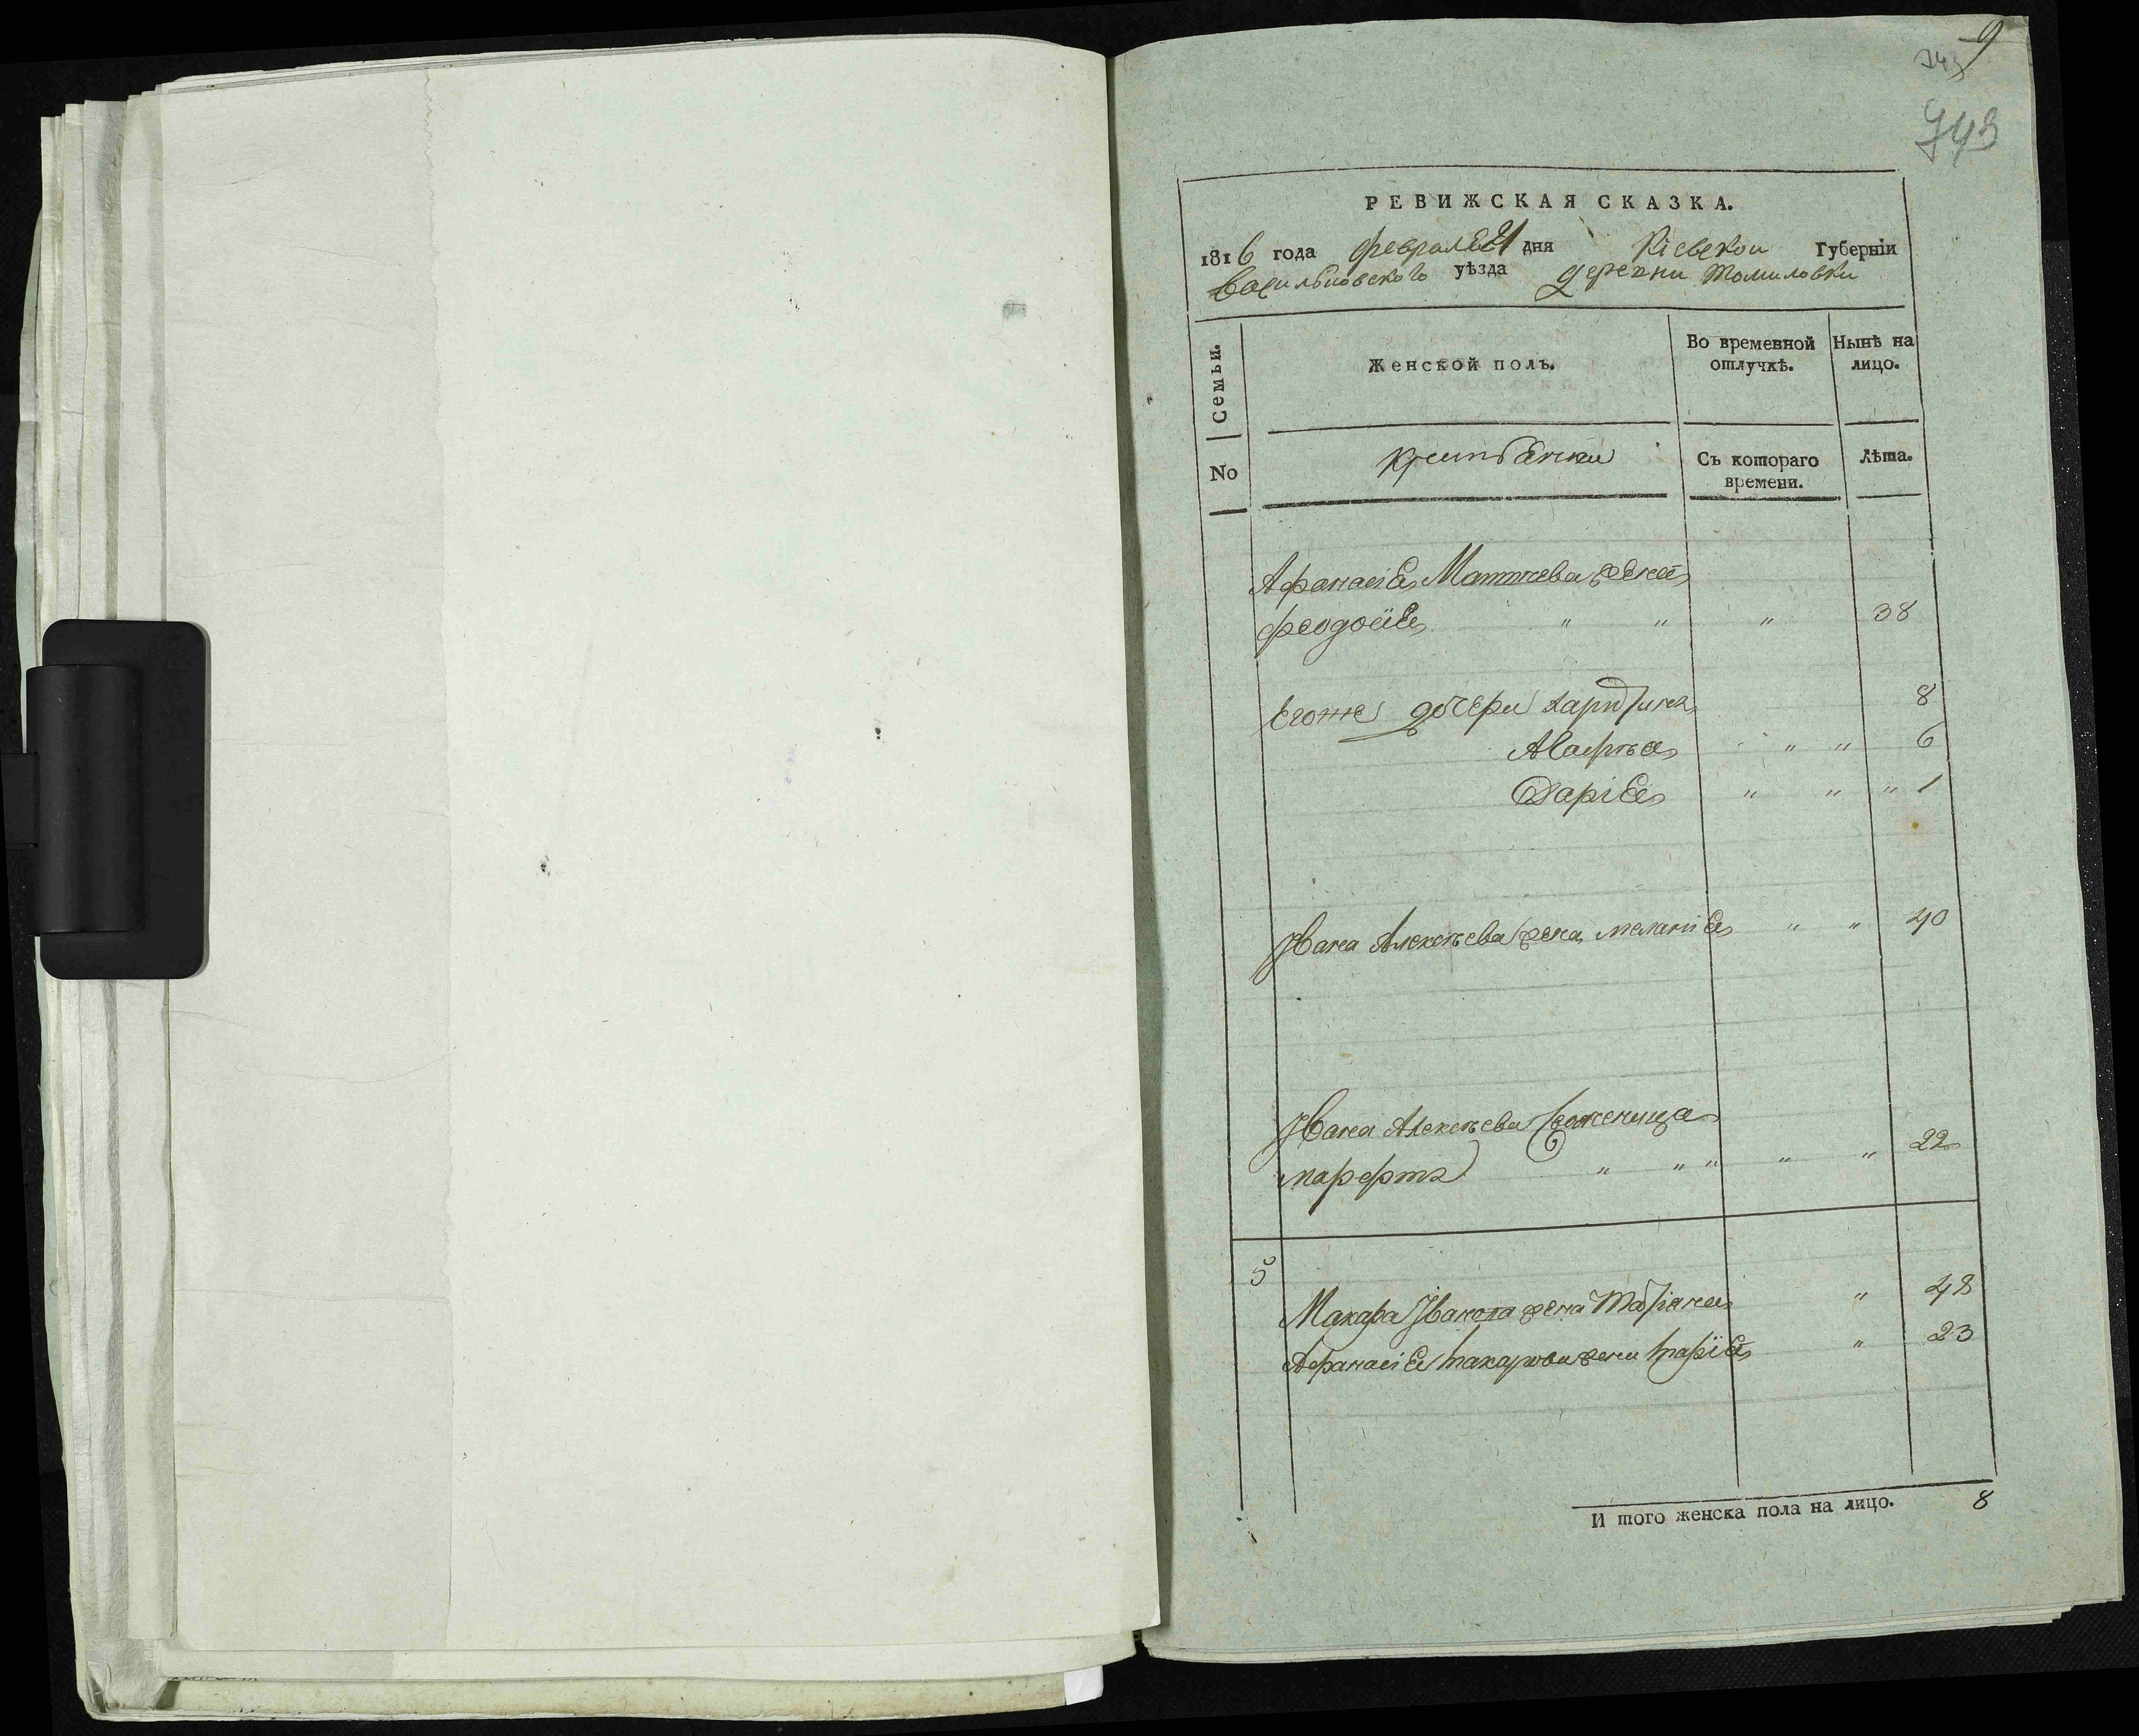 9
743
743
РЕВИЖСКАЯ СКАЗКА.
1816 года февраля 21 дня Кіевской Губерніи
Васильковского уѣзда деревни Томиловки
Семьи. Женской полъ. Во временной отлучкѣ. Нынѣ на лицо.
No крестьянки Съ котораго времени. Лѣта.
Афанасія Матвѣева жена
Феодосія " " " 38
Егоже дочери 8
Марѳа " " 6
Дарія " " " 1
Ивана Алексѣева жена Меланія " " 40
Ивана Алексѣева
" " " " " 22
5
Макара Иванова жена Татіана " 48
Афанасія Макарова жена Марія " 23
И того женска пола на лицо. 8